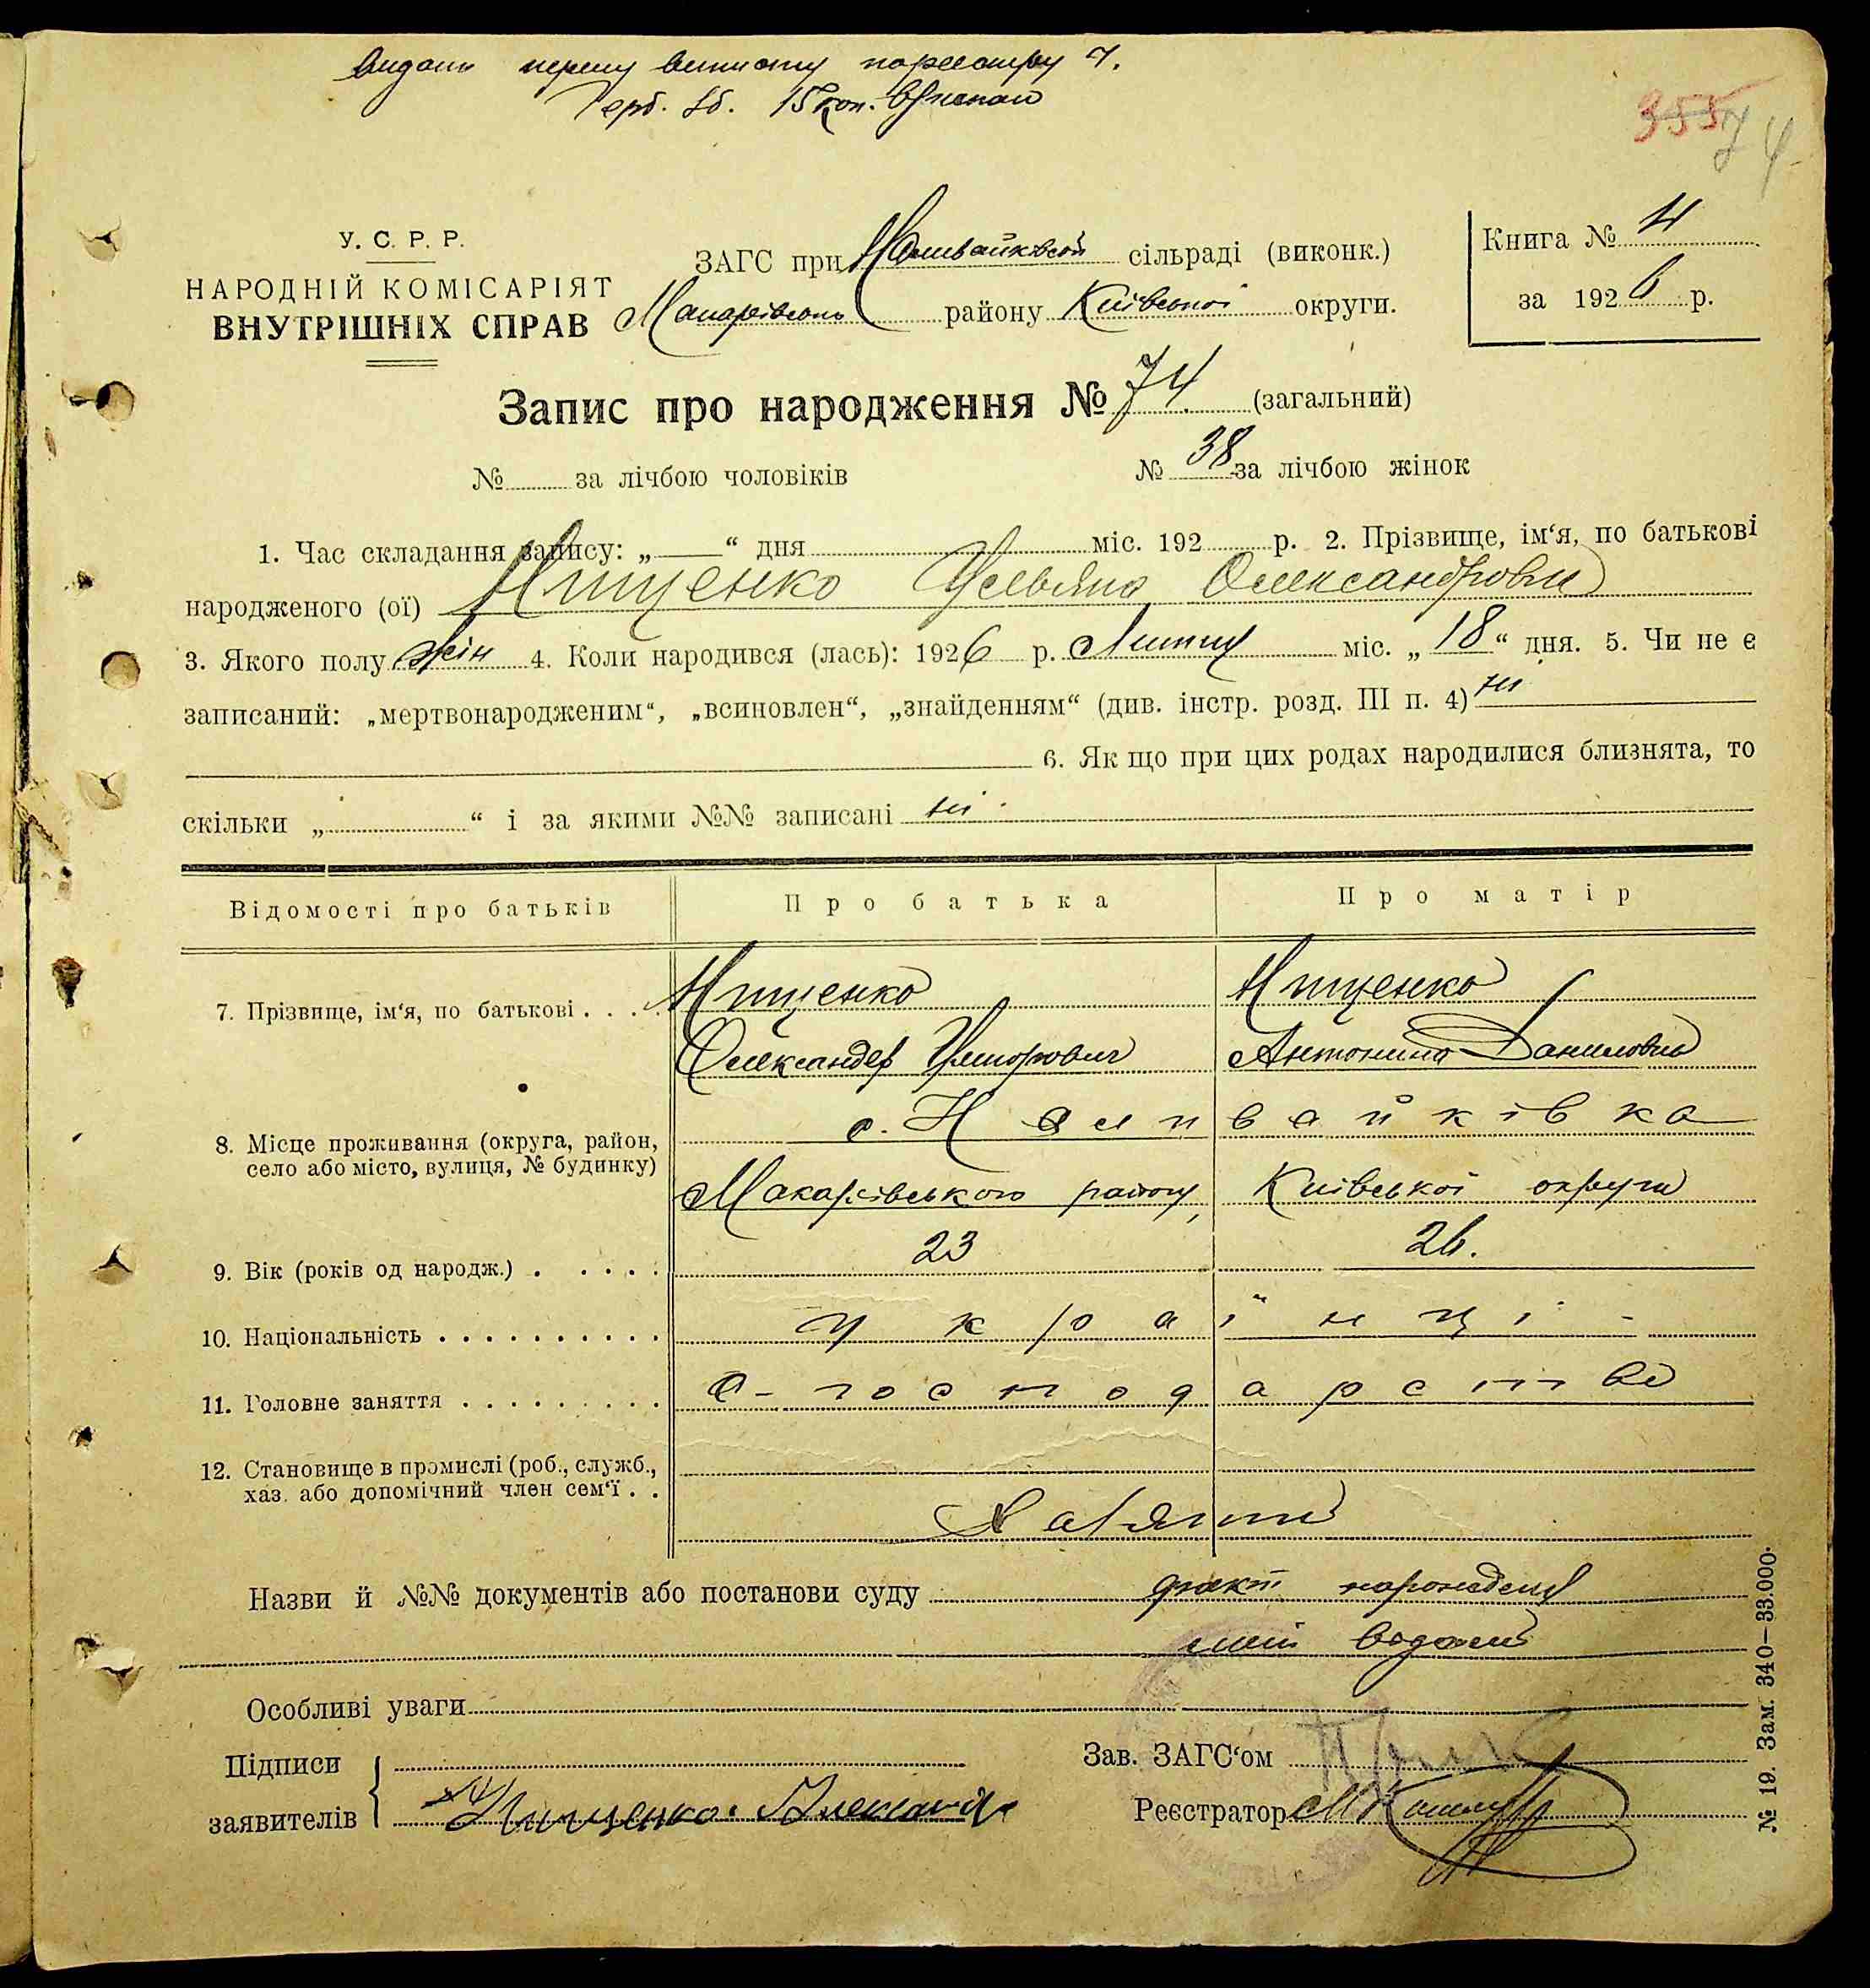 видано першу виписку по реєстру 7.
Герб. зб. 15 коп.
355 74
У. С. Р. Р.
НАРОДНІЙ КОМІСАРІЯТ
ВНУТРІШНІХ СПРАВ
ЗАГС при Наливайківській сільраді (виконк.)
Макарівськ району Київської округи.
Книга №
за 1926 р.
Запис про народження № 74 (загальний)
№ за лічбою чоловіків № 38 за лічбою жінок
1. Час складання запису: „ “ дня міс. 192 р. 2. Прізвище, ім‘я, по батькові
народженого (ої) Нищенко Уляна Олександровна
3. Якого полу жін 4. Коли народився (лась): 1926 р. Липня міс. „18“ дня. 5. Чи не є
записаний: „мертвонародженим“, „всиновлен“, „знайденням“ (див. інстр. розд. III п. 4) ні
6. Як що при цих родах народилися близнята, то
скільки „ “ і за якими №№ записані ні
Відомості про батьків Про батька Про матір
7. Прізвище, ім‘я, по батькові . . . . Нищенко Нищенко
Олександер Антонина Даниловна
8. Місце проживання (округа, район,
село або місто, вулиця, № будинку)
с. Наливайківка
Макарівського району, Київської округи
9. Вік (років од народж.) . . . . . 23 26.
10. Національність . . . . . . . . . . українці -
11. Головне заняття . . . . . . . . . с-господарство
12. Становище в промислі (роб., служб.,
хаз. або допомічний член сем‘ї . .
Хазяїни
Назви й №№ документів або постанови суду факт народження
Особливі уваги
Підписи
заявителів Нищенко Александр
Зав. ЗАГС‘ом
Реєстратор
№ 19. Зам. 340—33.000.